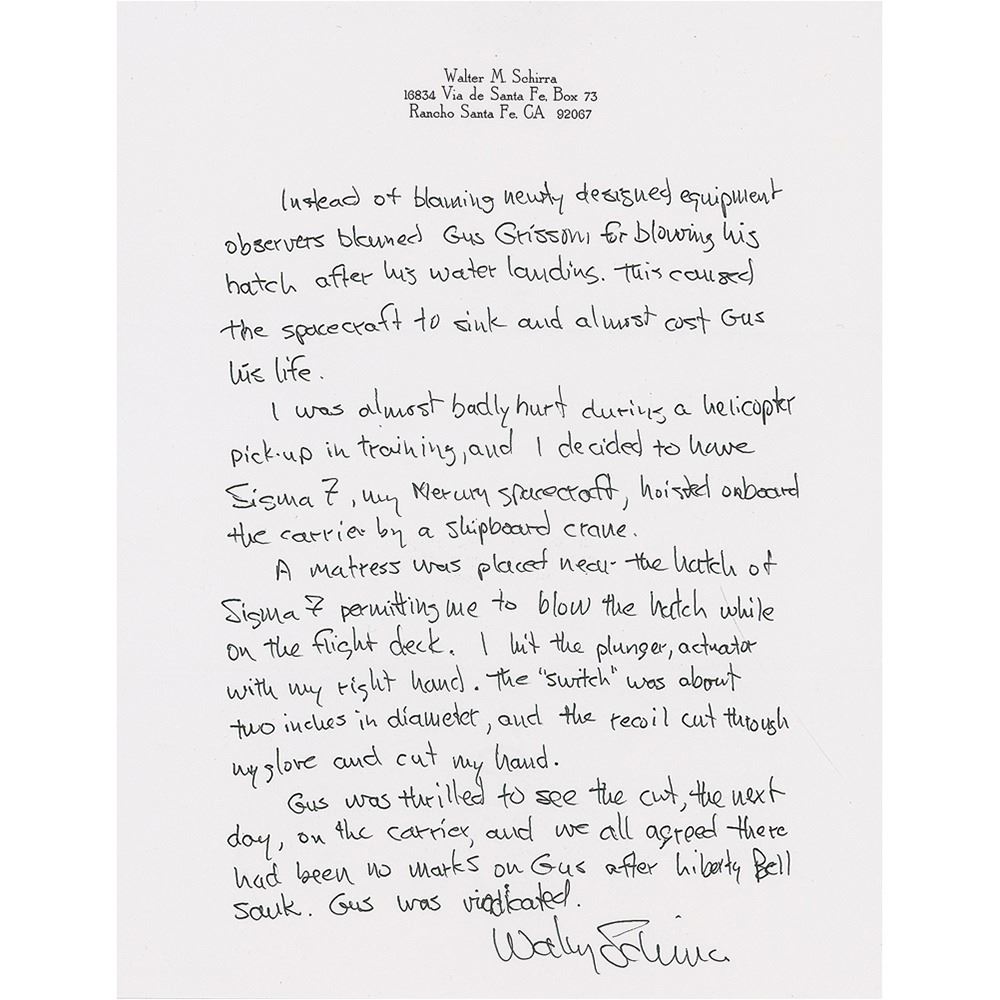 Walter M. Schirra
16834 Via de Santa Fe, Box 73
Rancho Santa Fe, CA 92067
Instead of blaming newly designed equipment
observers blamed Gus Grissom for blowing his
hatch after his water landing. This caused
the spacecraft to sink and almost cost Gus
his life.
I was almost badly hurt during a helicopter
pick-up in training, and I decided to have
Sigma 7, my Mercury spacecraft, hoisted onboard
the carrier by a shipboard crane.
A matress was placed near the hatch of
Sigma 7 permitting me to blow the hatch while
on the flight deck. I hit the plunger, actuator
with my right hand. The "switch" was about
two inches in diameter, and the recoil cut through
my glove and cut my hand.
Gus was thrilled to see the cut, the next
day, on the carrier, and we all agreed there
had been no marks on Gus after Liberty Bell
sank. Gus was vindicated.
Wally Schirra